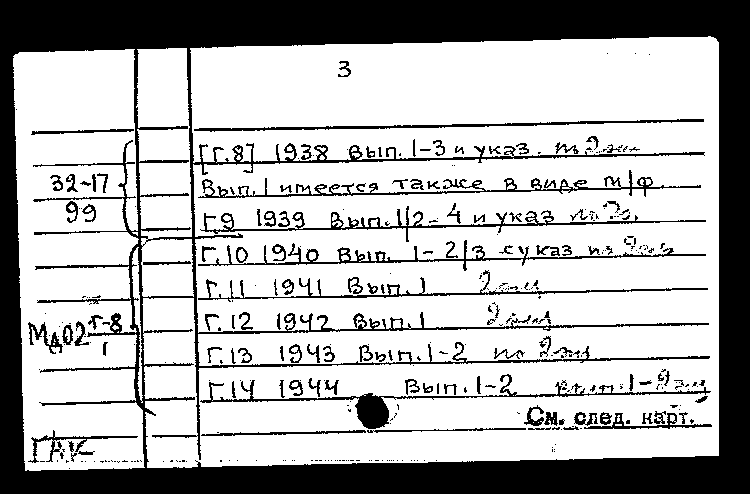 3
[Г.8] 1938 Вып. 1-3 и указ. по 2 экз
32-17
Вып. 1 имеется также в виде м/ф.
99
Г.9 1939 Вып. 1/2-4 и указ по 2э.
Г.10 1940 Вып. 1-2/3 с указ по 2 экз
Г.11 1941 Вып. 1 2 экз
МД02 Г-8/1
Г.12 1942 Вып. 1 2 экз
Г.13 1943 Вып. 1-2 по 2 экз
Г.14 1944 Вып. 1-2 вып. 1-2 экз
См. след. карт.
ГАК